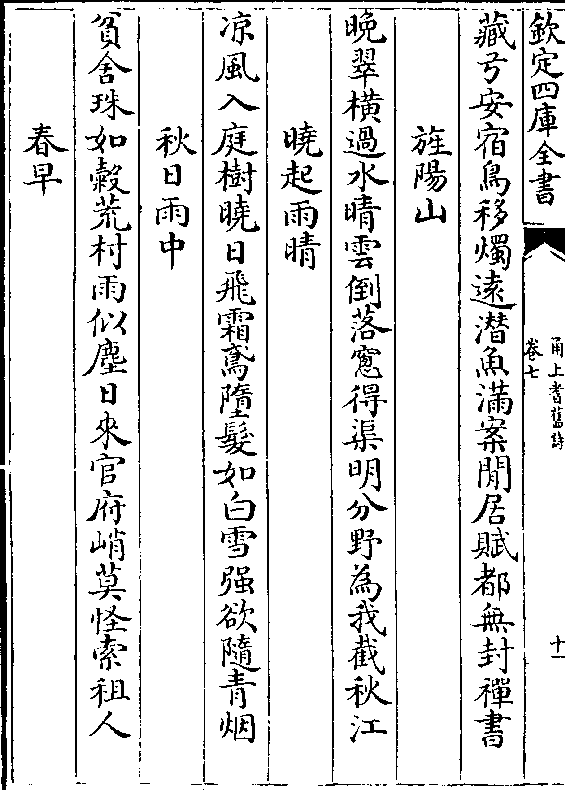 欽定四庫全書
甬上耆舊詩
卷七
十一
藏弓安宿鳥移燭遠潛魚滿案閒居賦都無封禪書
旌陽山
晚翠橫過水晴雲倒落窻得渠明分野為我截秋江
曉起雨晴
凉風入庭樹曉日飛霜鳶墮髮如白雪强欲隨青烟
秋日雨中
貧舍珠如穀荒村雨似塵日來官府峭莫怪索租人
春早